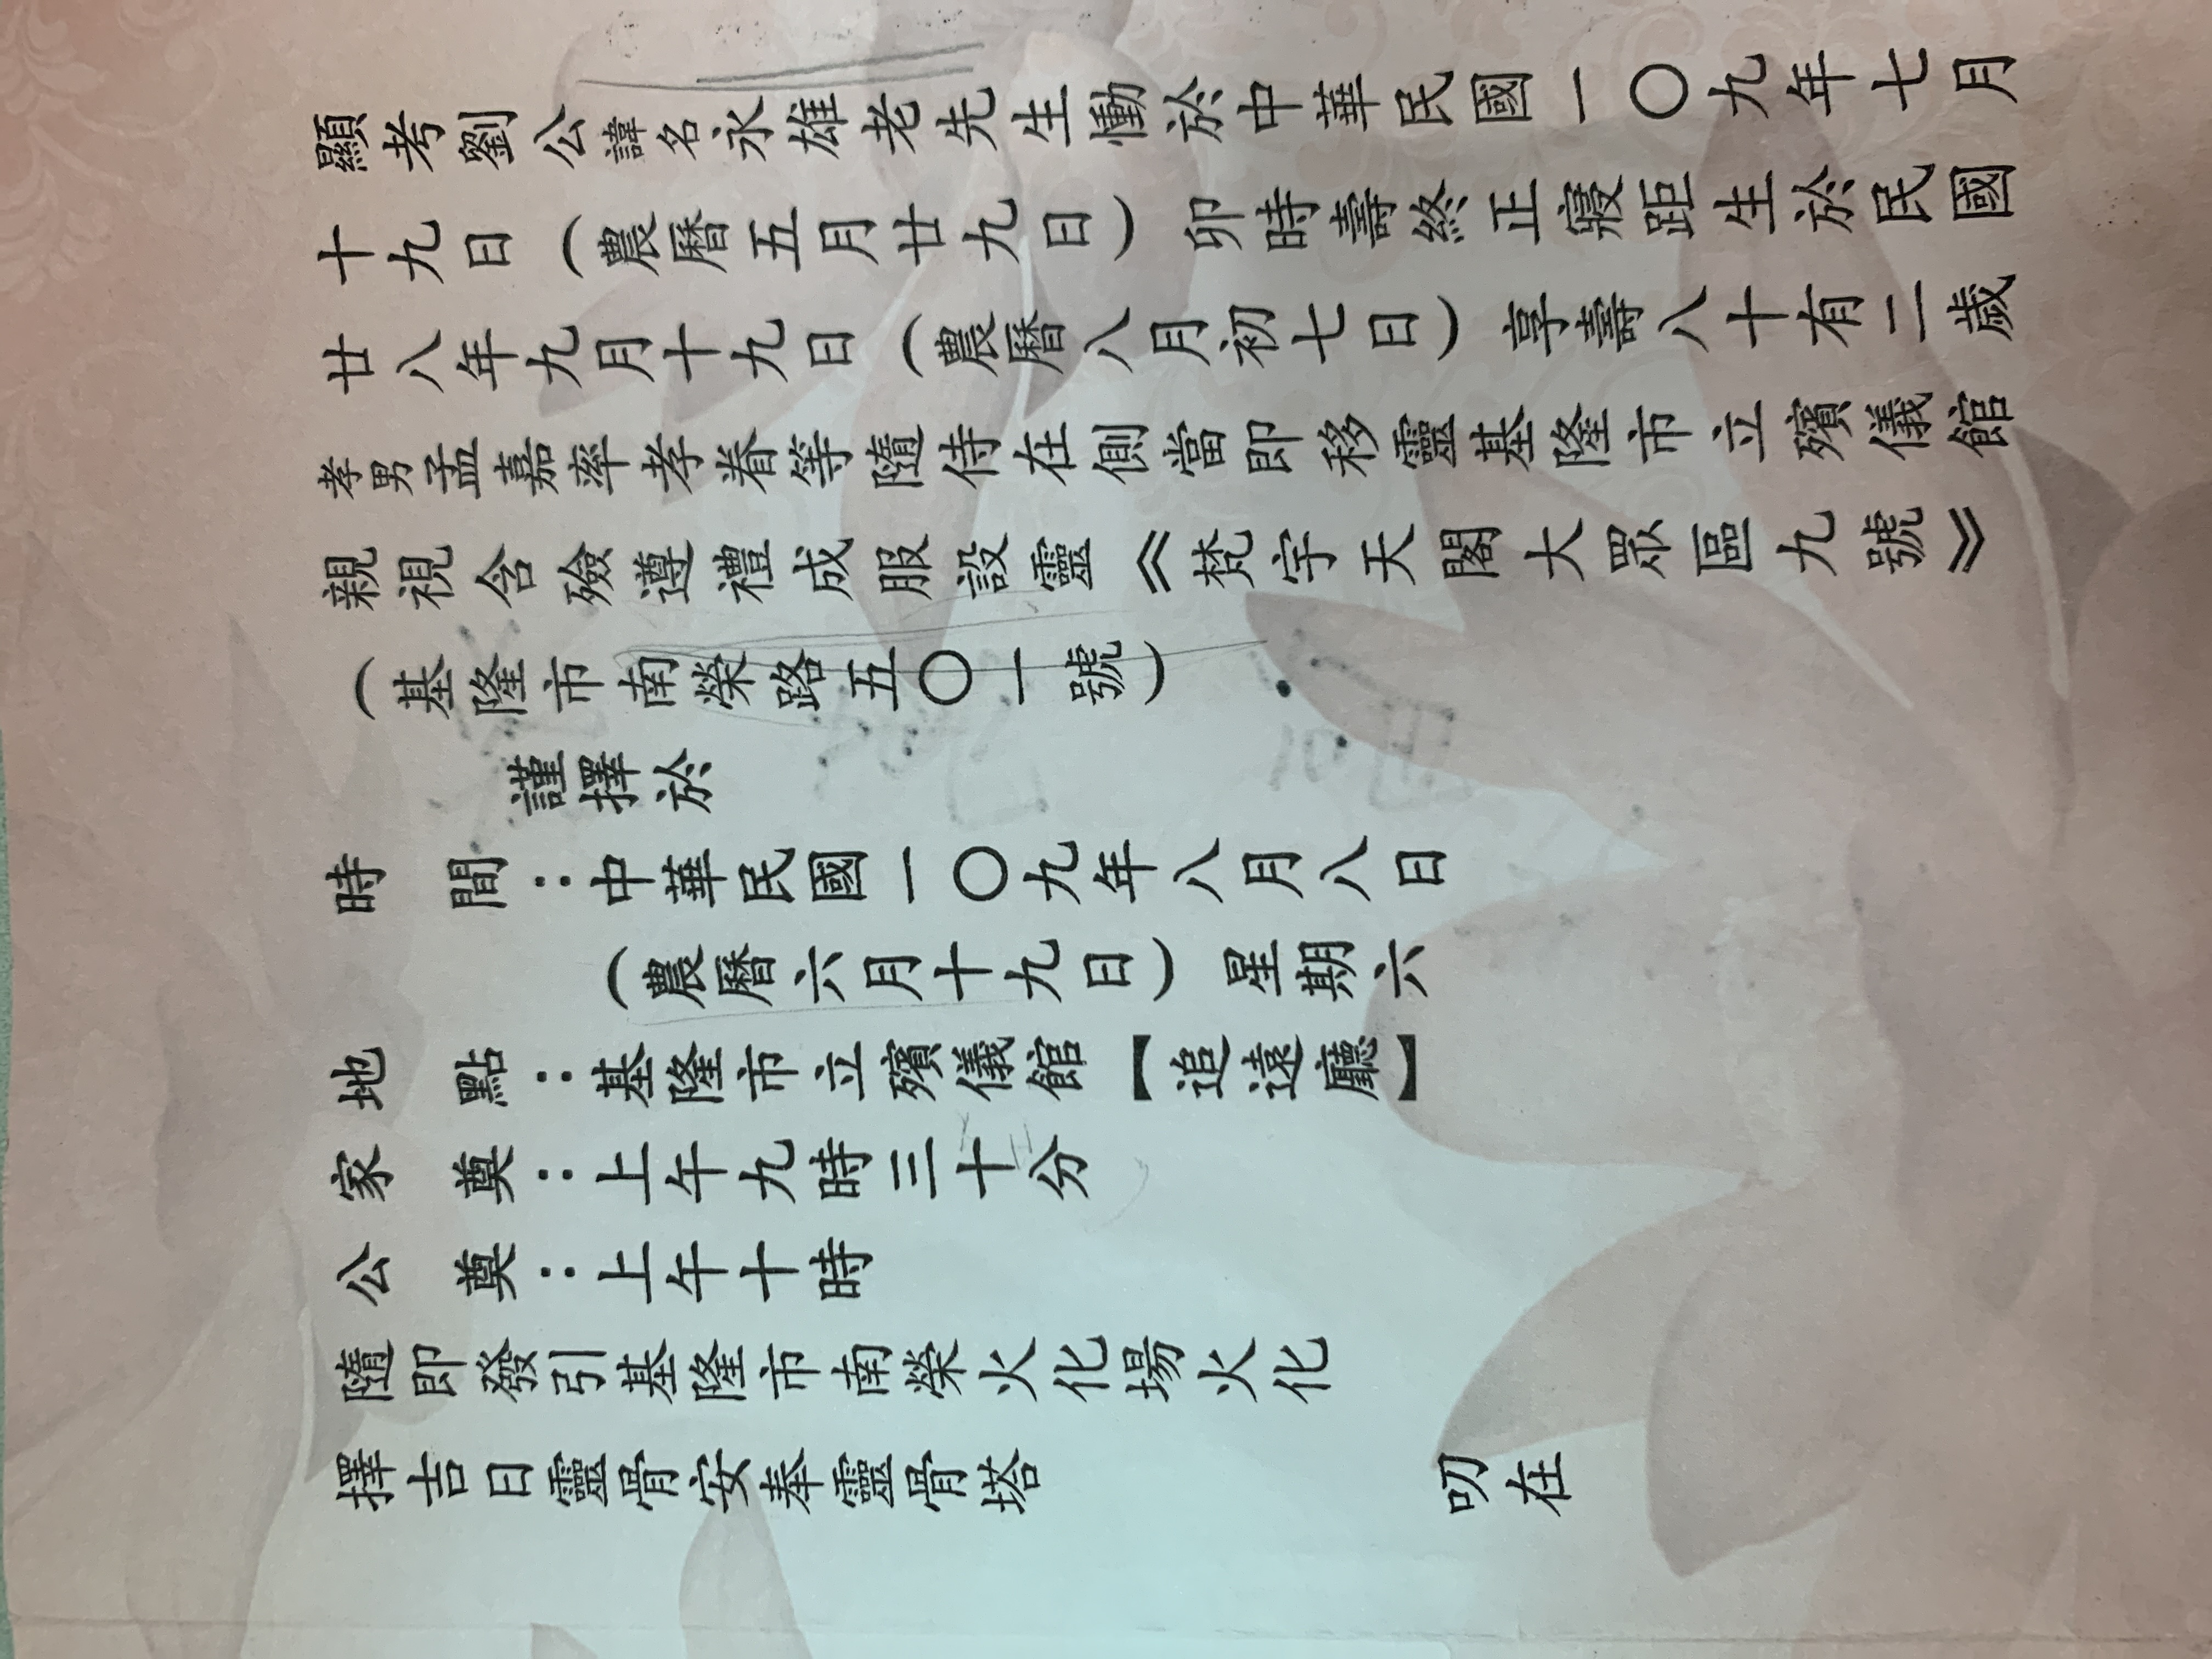 顯考劉公諱名永雄老先生慟於中華民國一〇九年七月
十九日（農曆五月廿九日）卯時壽終正寢距生於民國
廿八年九月十九日（農曆八月初七日）享壽八十有二歲
孝男孟嘉率孝眷等隨侍在側當即移靈基隆市立殯儀館
親視含殮遵禮成服設靈《梵宇天閣大眾區九號》
（基隆市南榮路五〇一號）
謹擇於
時間：中華民國一〇九年八月八日
（農曆六月十九日）星期六
地點：基隆市立殯儀館【追遠廳】
家奠：上午九時三十分
公奠：上午十時
隨即發引基隆市南榮火化場火化
擇吉日靈骨安奉靈骨塔 叨在